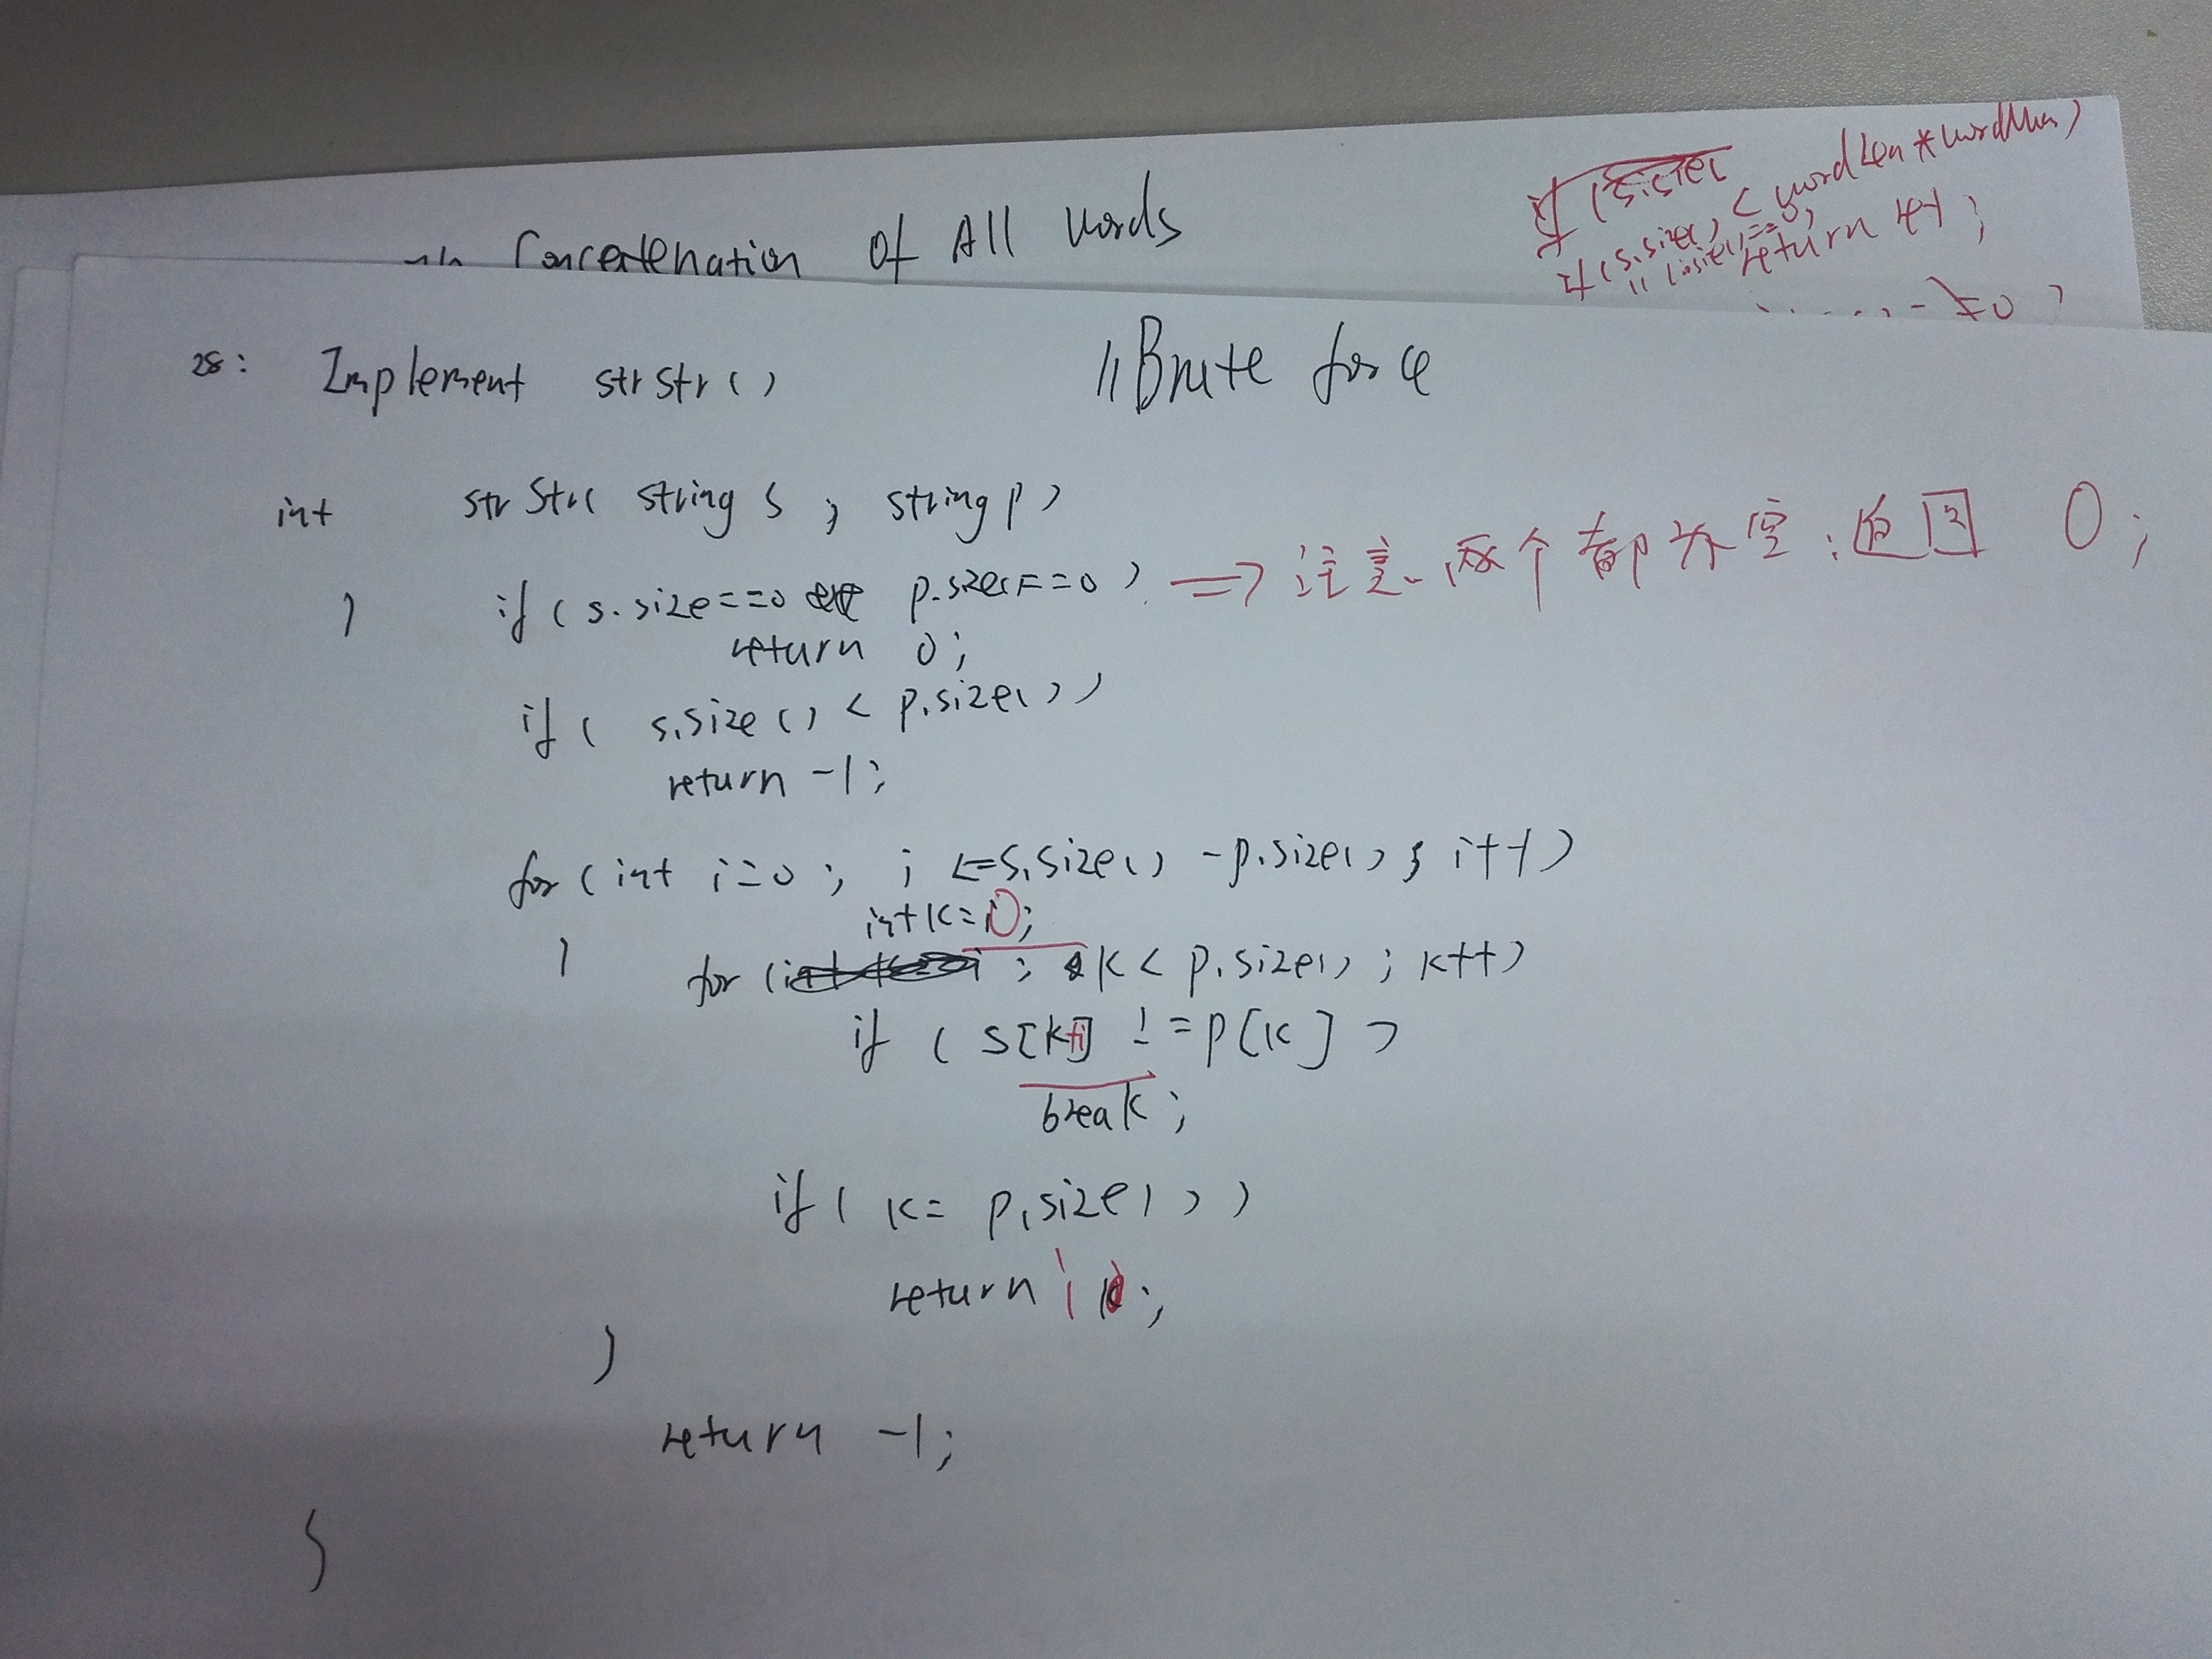 Concatenation of All words
if (s.size(
if (s.size() < wordLen * wordNum)
|| l.size() == 0)
return ret;
28: Implement strStr() //Brute force
int strStr( string s , string p )
{ if ( s.size==0 && p.size()==0 ) => 注意、两个都为空:返回 0;
return 0;
if ( s.size() < p.size() )
return -1;
for ( int i=0 ; i <=s.size() -p.size() ; i++ )
int k=0;
{ for ( ; k < p.size() ; k++ )
if ( s[k+i] != p[k] )
break;
if ( k= p.size() )
return i ;
}
return -1;
}